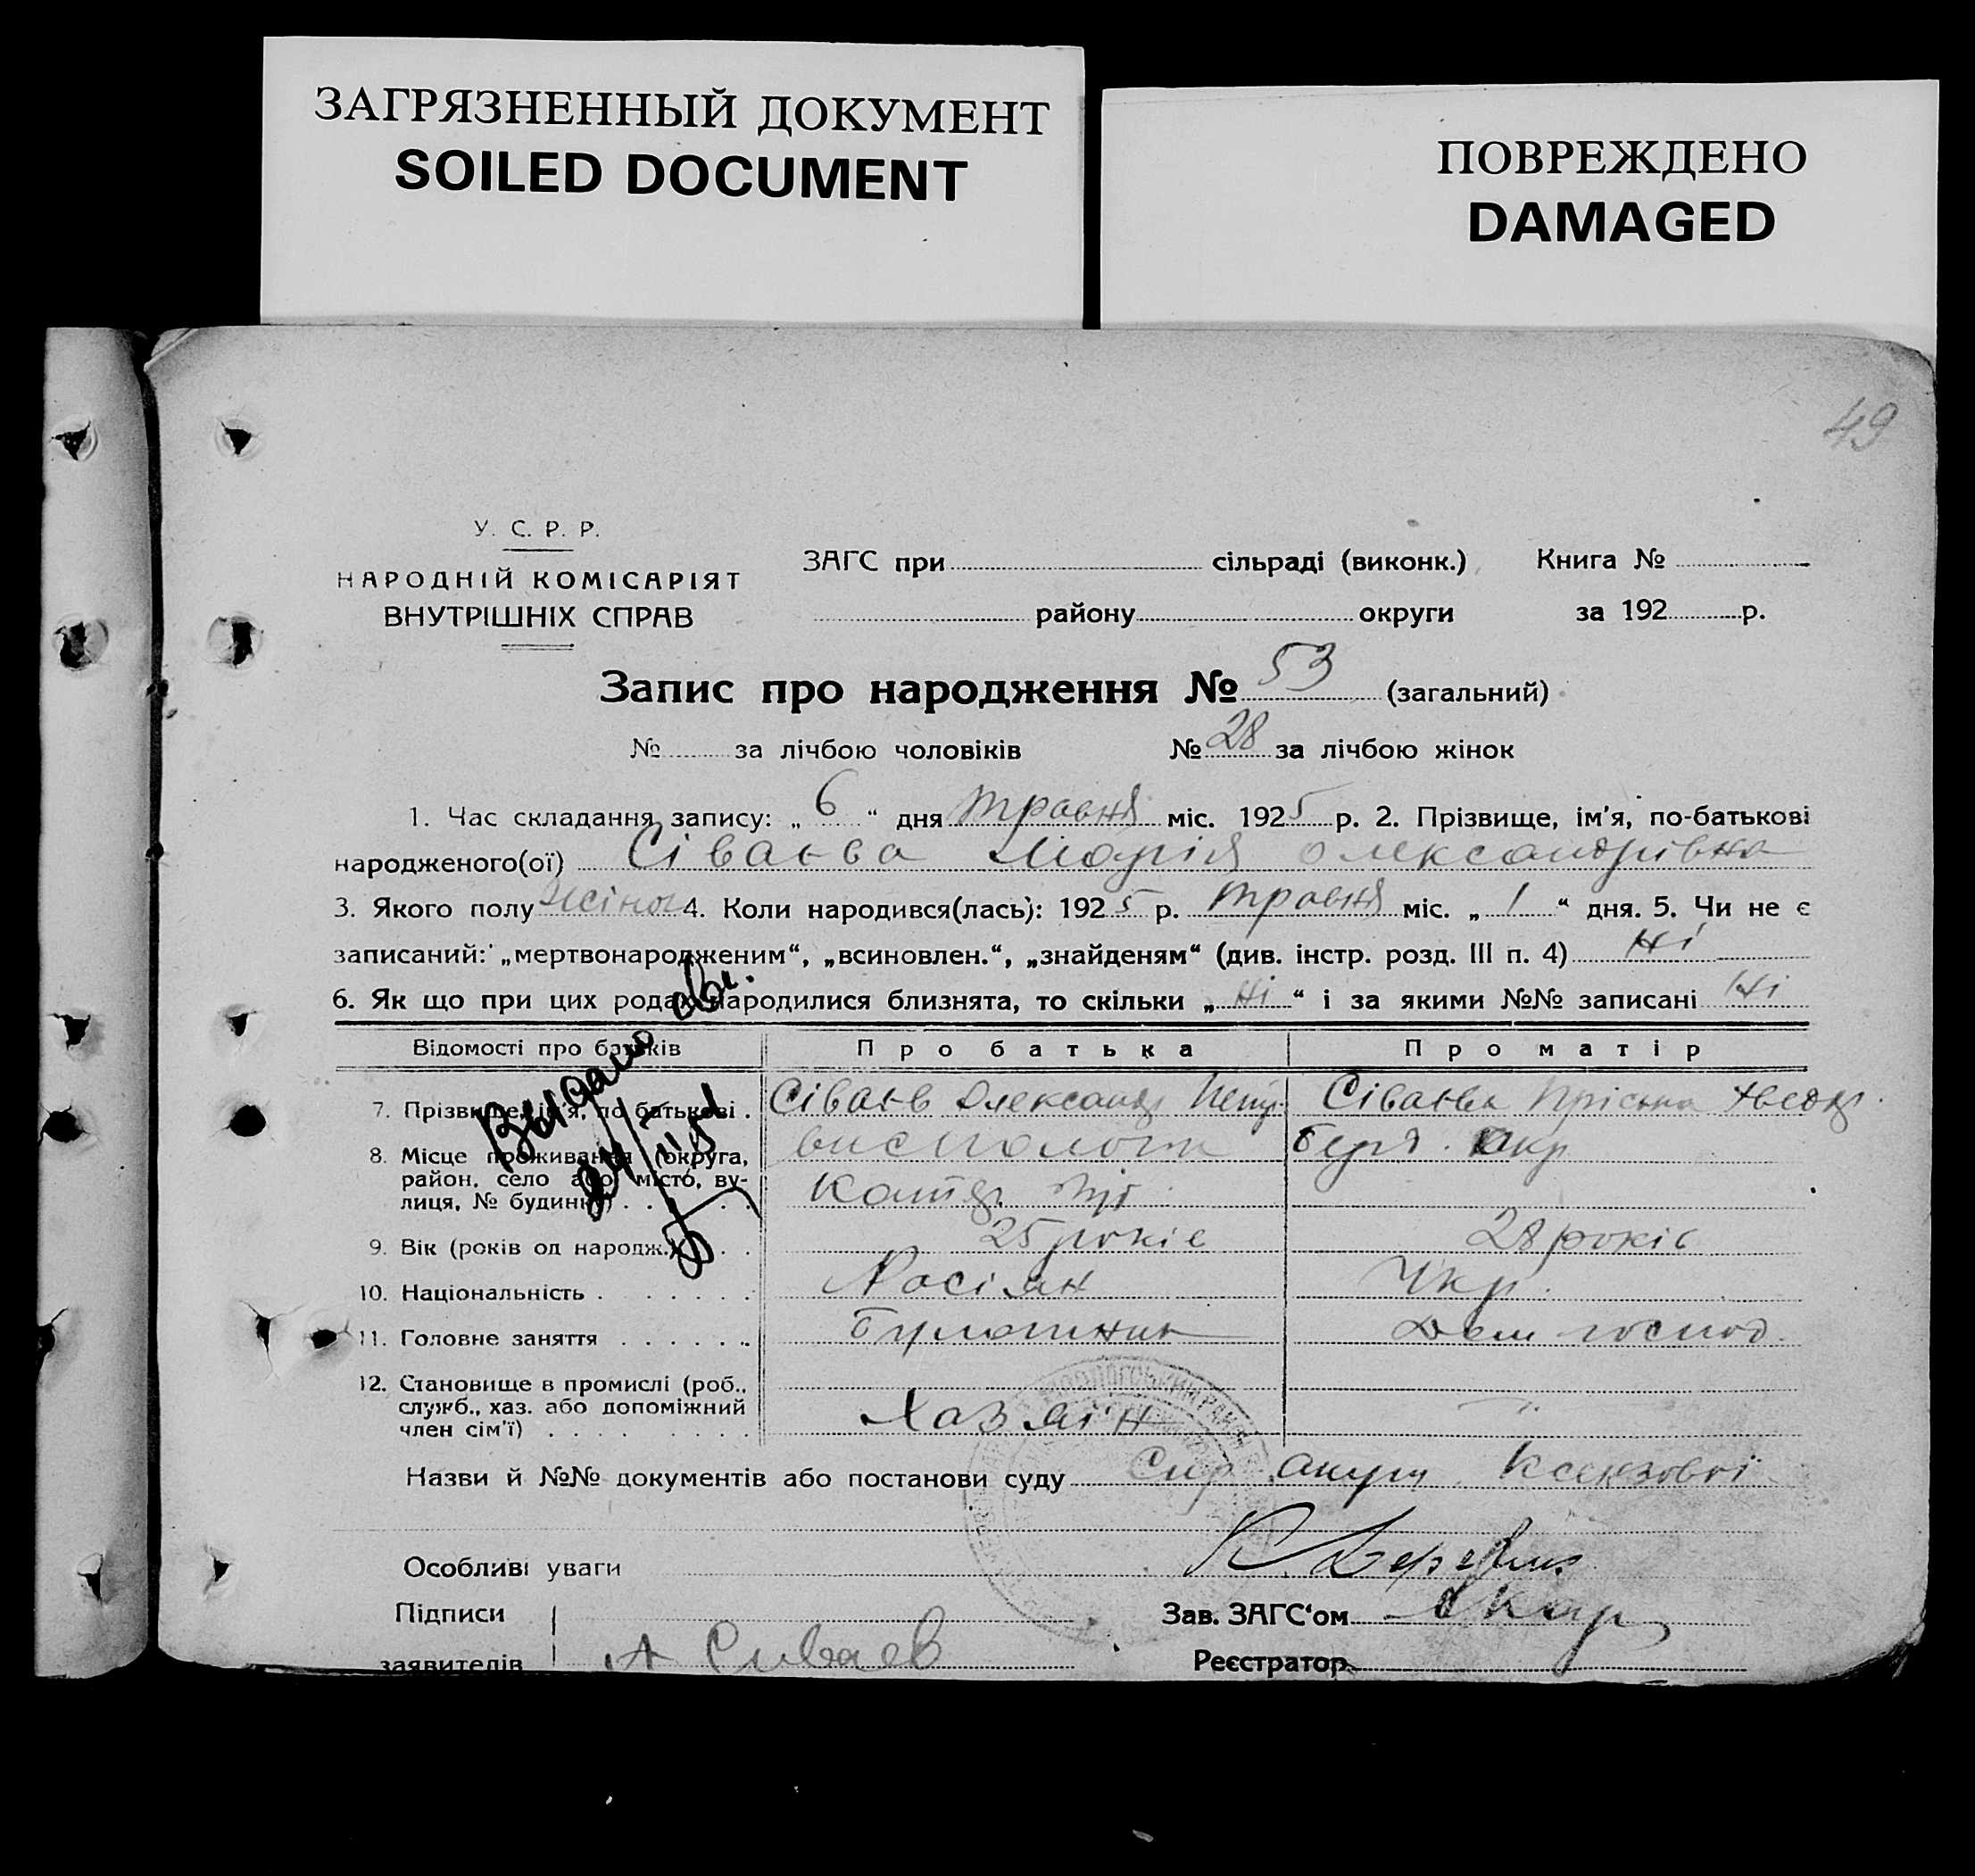 ЗАГРЯЗНЕННЫЙ ДОКУМЕНТ
SOILED DOCUMENT
ПОВРЕЖДЕНО
DAMAGED
49
У. С. Р. Р.
НАРОДНІЙ КОМІСАРІЯТ
ВНУТРІШНІХ СПРАВ
ЗАГС при сільраді (виконк.) Книга №
району округи за 192 р.
Запис про народження № 53 (загальний)
№ за лічбою чоловіків № 28 за лічбою жінок
1. Час складання запису: „ 6 “ дня травня міс. 1925 р. 2. Прізвище, ім'я, по-батькові
народженого(ої) Сіваєва Марія Олександрівна
3. Якого полу жіноч 4. Коли народився(лась): 1925 р. травня міс. „ 1 “ дня. 5. Чи не є
записаний: „мертвонародженим“, „всиновлен.“, „знайденям“ (див. інстр. розд. III п. 4) Ні
6. Як що при цих родах народилися близнята, то скільки „ Ні “ і за якими №№ записані Ні
Відомості про батьків Про батька Про матір
7. Прізвище, ім'я, по батькові . Сіваєв Олександр Петр. Сіваєва Пріська
8. Місце проживання (округа,
район, село або місто, ву-
лиця, № будинку) . . .
9. Вік (років од народж.) . . 25 років 28 років
10. Національність . Росіян Укр.
11. Головне заняття Дом господ.
12. Становище в промислі (роб.,
служб., хаз. або допоміжний
член сім'ї) Хазяїн - " -
Выдано
Назви й №№ документів або постанови суду
Особливі уваги
Підписи
заявителів А Сиваев
Зав. ЗАГС‘ом
Реєстратор